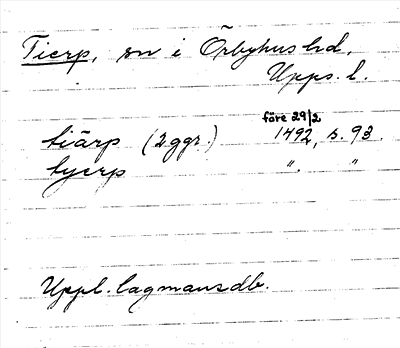 Tierp, sn i Örbyhus hd,
Upps. l.
före 29/2
tiärp (2 ggr.) 1492, s. 93.
tyerp " "
Uppl. lagmansdb.